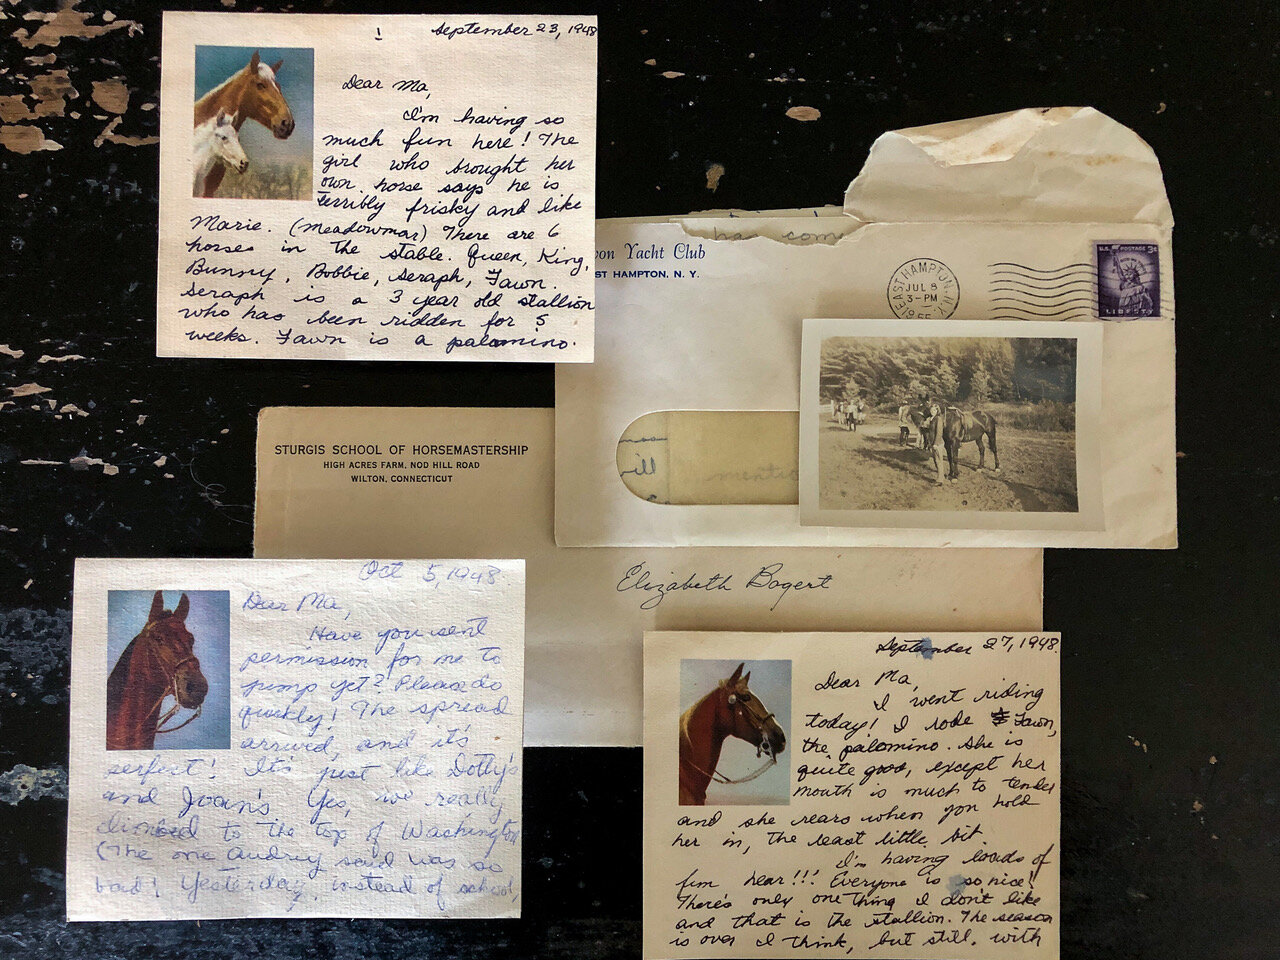 September 23, 1948
Dear Ma,
I'm having so
much fun here! The
girl who brought her
own horse says he is
terribly frisky and like
Marie. (Meadowmar) There are 6
horses in the stable. Queen, King,
Bunny, Bobbie, Seraph, Fawn.
Seraph is a 3 year old stallion
who has been ridden for 5
weeks. Fawn is a palomino.
has come
Yacht Club
ST HAMPTON, N. Y.
EAST HAMPTON, N.Y.
JUL 8
3-PM
U.S. POSTAGE 3¢
LIBERTY
will
mentio
STURGIS SCHOOL OF HORSEMASTERSHIP
HIGH ACRES FARM, NOD HILL ROAD
WILTON, CONNECTICUT
Elizabeth Bogert
Oct 5, 1948
Dear Ma,
Have you sent
permission for me to
jump yet? Please do
quickly! The spread
arrived, and it's
perfect! It's just like Dotty's
and Joan's. Yes, we really
climbed to the top of Washington
(The one Audrey said was so
bad! Yesterday, instead of school,
September 27, 1948
Dear Ma,
I went riding
today! I rode Fawn,
the palomino. She is
quite good, except her
mouth is much to tender
and she rears when you hold
her in, the least little bit.
I'm having loads of
fun hear!!! Everyone is so nice!
There's only one thing I don't like
and that is the stallion. The season
is over I think, but still, with